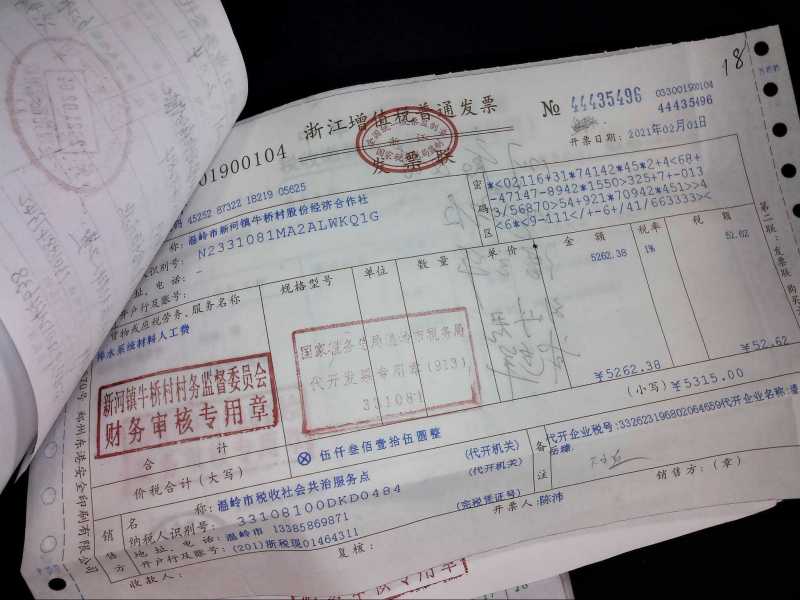 18
浙江增值税普通发票
发票联
№ 44435496
033001900104
44435496
开票日期：2021年02月01日
01900104
码 45252 87322 18219 05625
称：温岭市新河镇牛桥村股份经济合作社
人识别号：N2331081MA2ALWKQ1G
址、电话：-
开户行及账号：
密码区
*<02116+31*74142*45*2+4<68+
-47147-8942*1550>325+7+-013
3/56870>54+921*70942*451>>4
<6*<9-111</+-6+/41/663333><
货物或应税劳务、服务名称
规格型号
单位
数量
单价
金额
税率
税额
排水系统材料人工费
5262.38
1%
52.62
国家税务总局温岭市税务局
代开发票专用章(913)
331081
新河镇牛桥村村务监督委员会
财务审核专用章
合计
￥5262.38
￥52.62
价税合计（大写）
ⓧ 伍仟叁佰壹拾伍圆整
（小写）￥5315.00
销售方
名称：温岭市税收社会共治服务点
(代开机关)
纳税人识别号：33108100DKD0484
(代开机关)
地址、电话：温岭市 13385869871
开户行及账号：(201)浙税现01464311
(完税凭证号)
备注
代开企业税号:332623196802064659代开企业名称:潘
收款人：
复核：
开票人:陈沛
销售方：（章）
第二联：发票联
郑州东港安全印刷有限公司